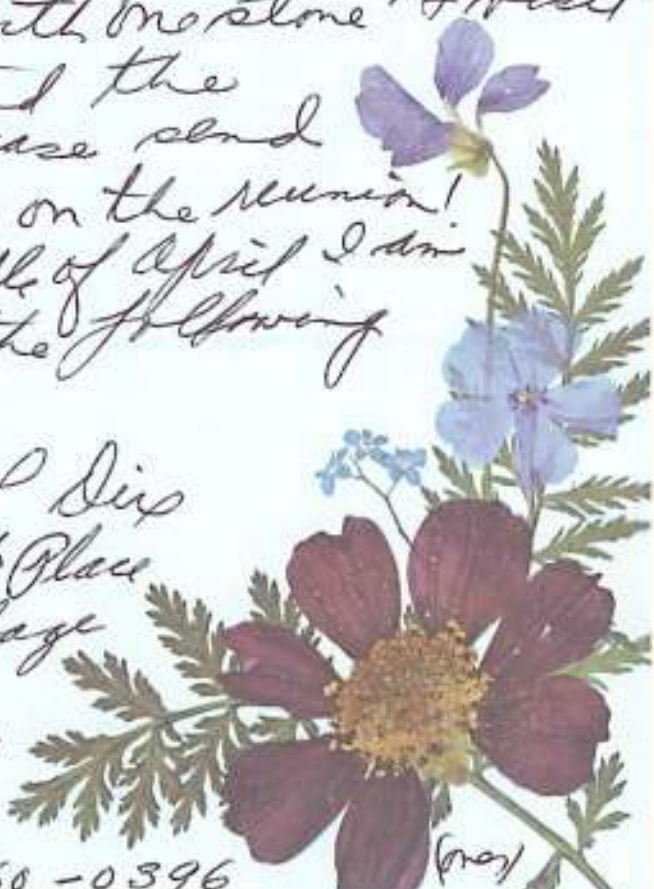 one stone
the
send
on the reunion!
of April I am
the following
Dix
Place
-0396
(over)